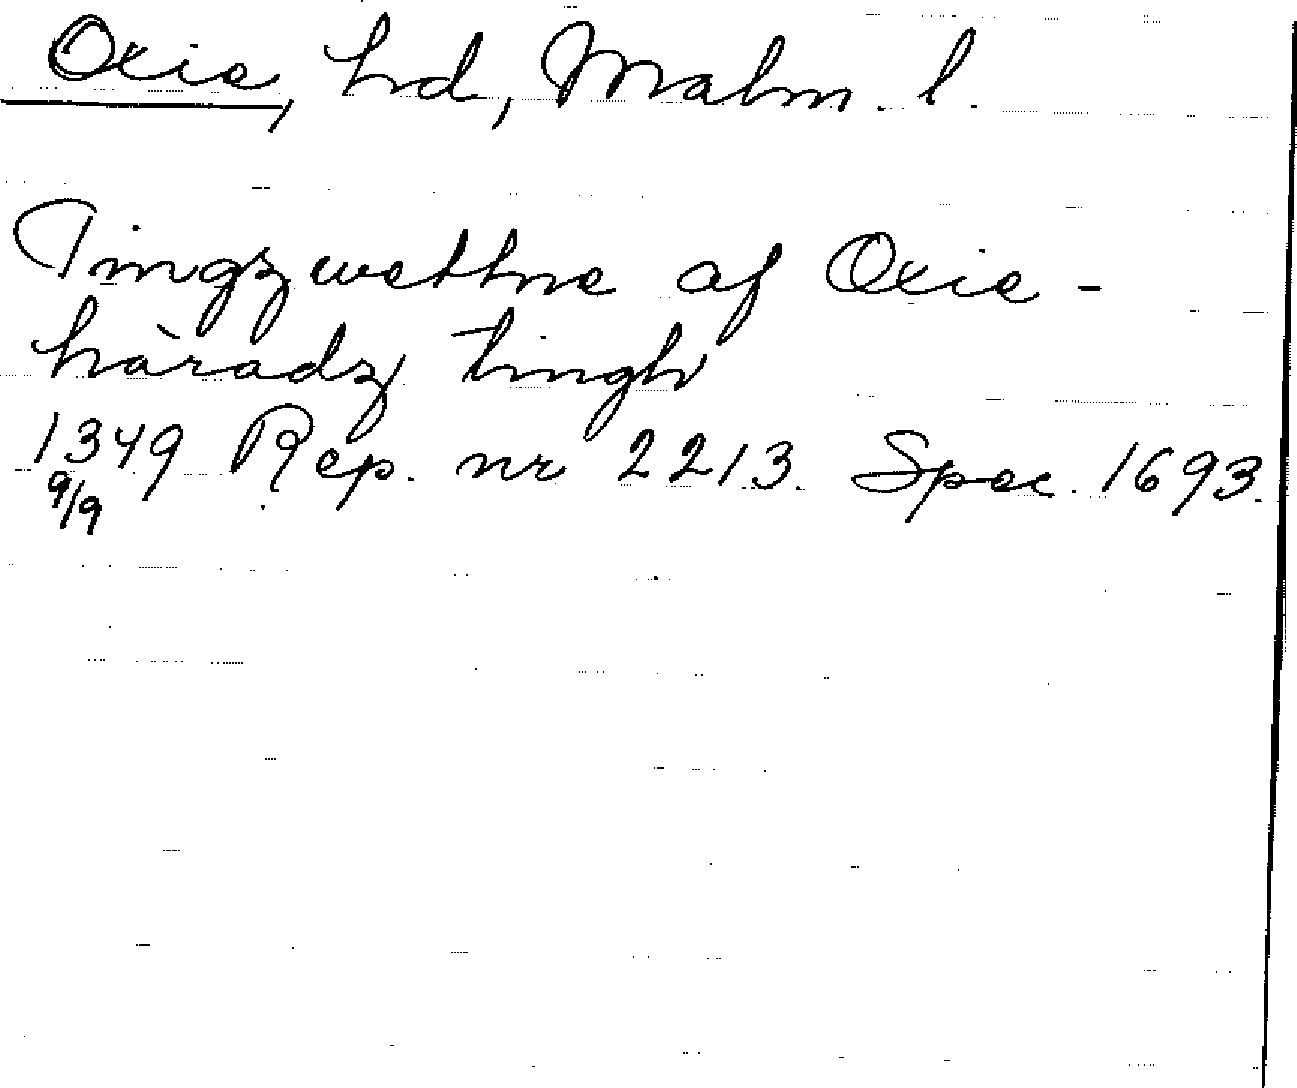 Oxie, hd, Malm. l.
Tingzwettne af Oxie-
häradz tingh
1349 Rep. nr 2213. Spec. 1693.
9/9